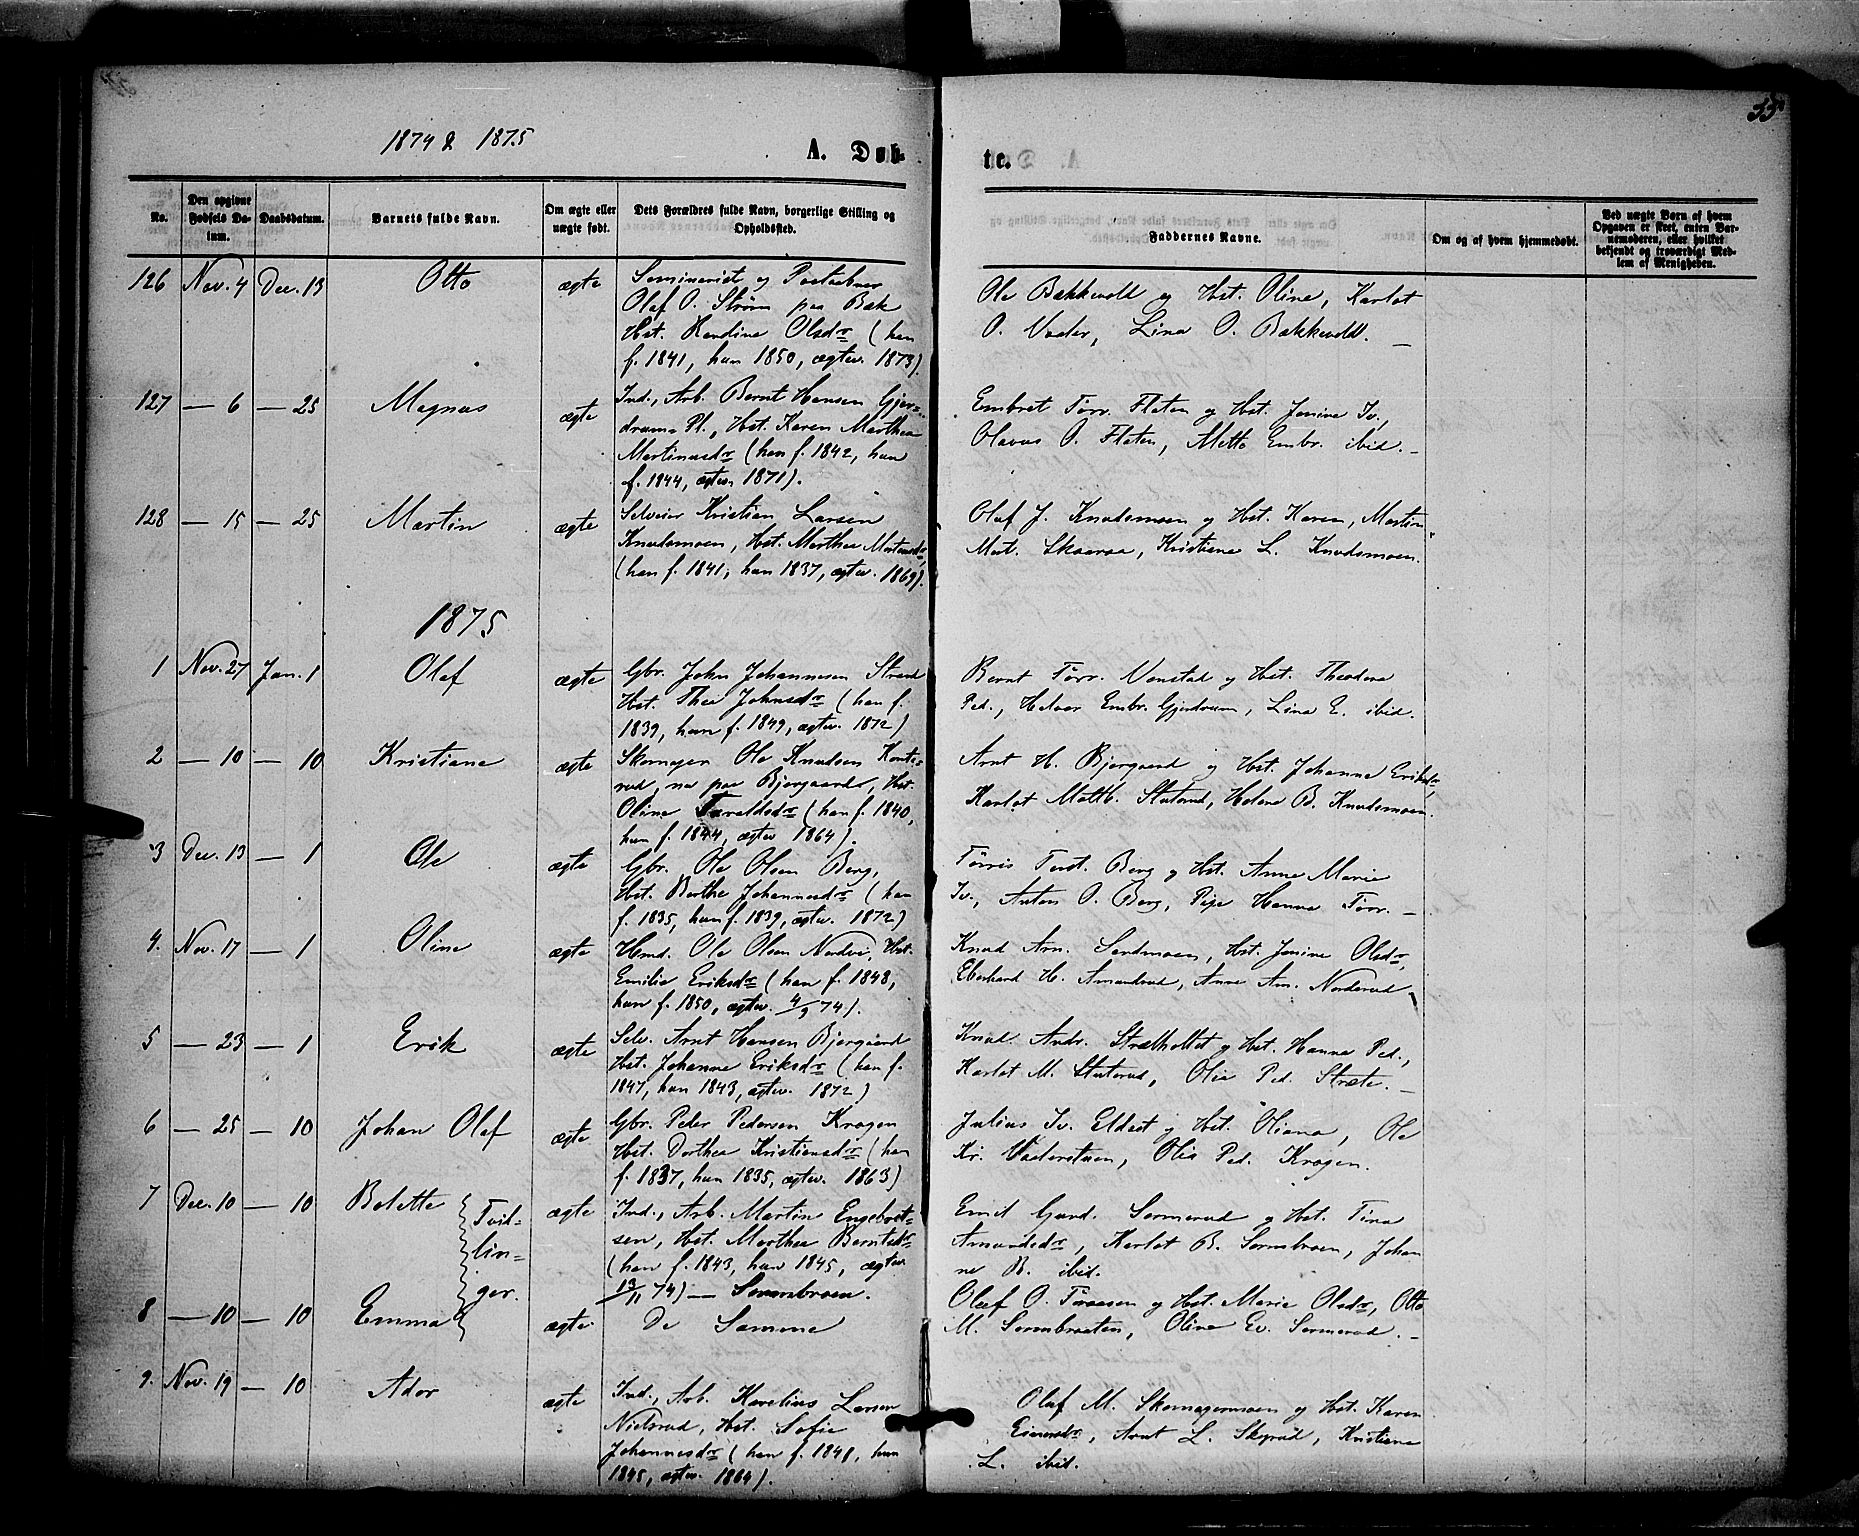 1874 & 1875
A. Døb-
te.
55
No.
Den opgivne Fødsels Datum.
Daabsdatum.
Barnets fulde Navn.
Om ægte eller uægte født.
Dets Forældres fulde Navn, borgerlige Stilling og Opholdsted.
Faddernes Navne.
Om og af hvem hjemmedøbt.
Ved uægte Børn af hvem Opgaven er skeet, enten Barnemoderen, eller hvilket bekjendt og troværdigt Medlem af Menigheden.
126 Nov. 4 Dec. 13 Otto ægte
Seminarist og Postaabner
Olaf O. Strøm paa Bak
Hst. Randine Olsdr (han
f. 1841, hun 1850, ægtev. 1873).
Ole Bakkevold og Hst. Oline, Karlot
O. Vaaler, Lina O. Bakkevold. —
127 — 6 — 25 Magnus ægte
Ind., Arb. Bernt Hansen Gjer-
drums Pl., Hst. Karen Marthea
Martinusdr (han f. 1842, hun
f. 1844, ægtev. 1871).
Embret Torr. Flaten og Hst. Janine Iv.,
Olavus O. Flaten, Mette Embr. ibid. —
128 — 15 — 25 Martin ægte
Selveier Kristian Larsen
Knudsmoen, Hst. Marthea Martinsdr
(han f. 1841, hun 1837, ægtev. 1869).
Olaf J. Knudsmoen og Hst. Karen, Martin
Mat. Skaaraa, Kristiane L. Knudsmoen.
1875
1 Nov. 27 Jan. 1 Olaf ægte
Gbr. John Johannesen Strand
Hst. Thea Johnsdr (han f.
1839, hun f. 1849, ægtev. 1872)
Bernt Torr. Vonstad og Hst. Theodora
Ped., Helvor Embr. Gjerdrum, Lina E. ibid.
2 — 10 — 10 Kristiane ægte
Skomager Ole Knudsen Konte-
rud, nu paa Bjørgaard, Hst.
Oline Taraldsdr (han f. 1840,
hun f. 1844, ægtev. 1864).
Arnt H. Bjørgaard og Hst. Johanne Eriksdr
Karlot Matth. Stuterud, Helene B. Knudsmoen.
3 Dec. 13 — 1 Ole ægte
Gbr. Ole Olsen Berg,
Hst. Berthe Johannesdr (han
f. 1835, hun f. 1839, ægtev. 1872)
Tørris Berg og Hst. Anne Marie
Iv., Anton O. Berg, Pige Hanna Torr. —
4. Nov. 17 — 1 Oline ægte
Hmd. Ole Olsen Nordvi, Hst.
Emilie Eriksdr (han f. 1848,
hun f. 1850, ægtev. 4/9 74).
Knud Arn. Sandmoen, Hst. Janine Olsdr,
Eberhard H. Amundrud, Anne Am. Norderud
5 — 23 — 1 Erik ægte
Selv. Arnt Hansen Bjørgaard
Hst. Johanne Eriksdr (han f.
1847, hun 1843, ægtev. 1872)
Knud Andr. Strætkottet og Hst. Hanna Ped.,
Karlot M. Stuterud, Olia Ped. Stræte. —
6 — 25 — 10 Johan Olaf ægte
Gbr. Peter Pedersen Kragen
Hst. Dorthea Kristiansdr (han
f. 1837, hun 1835, ægtev. 1863)
Julius Iv. Eldset og Hst. Oliana, Ole
Kr. Vaalerstuen, Olia Ped. Kragen.
7 Dec. 10 — 10 Bolette ægte
Tvil-
lin-
ger.
Ind., Arb. Martin Engebret-
sen, Hst. Marthea Berntsdr
(han f. 1843, hun 1845, ægtev.
13/11 74) — Sormbroen.
Emil Gund. Sormerud og Hst. Tina
Amundsdr, Karlot B. Sormbroen, Johan
ne B. ibid.
8 — 10 — 10 Emma ægte
De Samme
Olaf O. Traasen og Hst. Marie Olsdr, Otto
M. Sormbraaten, Oline Ev. Sormerud. —
9. Nov. 19 — 10 Ador ægte
Ind., Arb. Karelius Larsen
Nielsrud, Hst. Sofie
Johannesdr (han f. 1841, hun
1845, ægtev. 1864).
Olaf M. Skomagermoen og Hst. Karen
Einersdr, Arnt L. Skyrud, Kristiane
L. ibid.